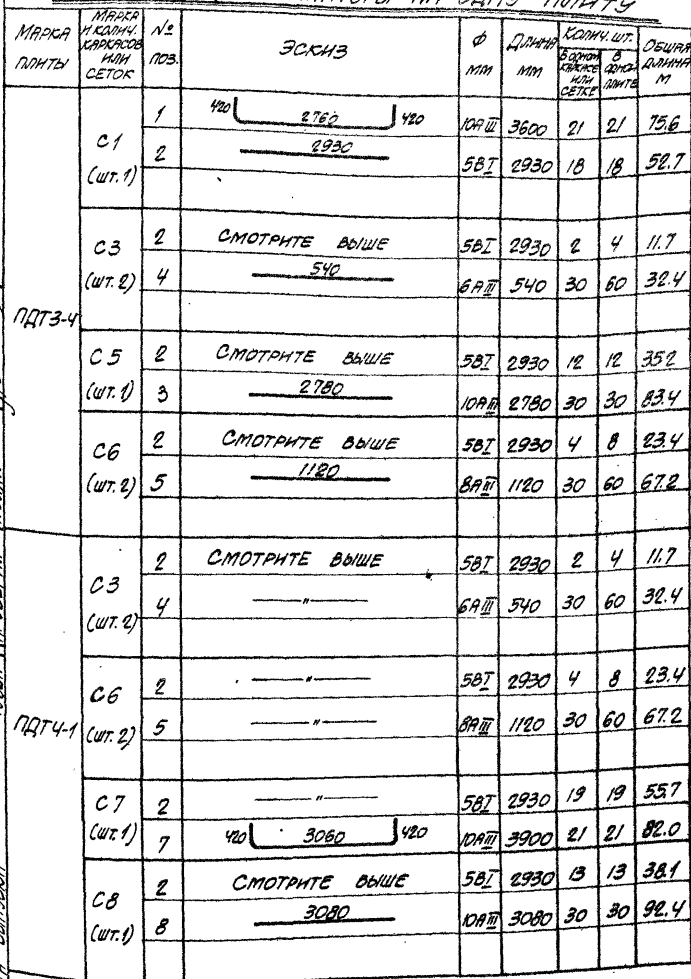 НА ОДНУ ПЛИТУ
МАРКА ПЛИТЫ | МАРКА И КОЛИЧ. КАРКАСОВ ИЛИ СЕТОК | № ПОЗ. | ЭСКИЗ | ф ММ | ДЛИНА ММ | КОЛИЧ. ШТ. В ОДНОМ КАРКАСЕ ИЛИ СЕТКЕ | В ОДНОЙ ПЛИТЕ | ОБЩАЯ ДЛИНА М
ПДТ3-4
С1 (ШТ.1) | 1 | 420 2760 420 | 10АIII | 3600 | 21 | 21 | 75.6
2 | 2930 | 5ВI | 2930 | 18 | 18 | 52.7
С3 (ШТ.2) | 2 | СМОТРИТЕ ВЫШЕ | 5ВI | 2930 | 2 | 4 | 11.7
4 | 540 | 6АIII | 540 | 30 | 60 | 32.4
С5 (ШТ.1) | 2 | СМОТРИТЕ ВЫШЕ | 5ВI | 2930 | 12 | 12 | 352
3 | 2780 | 10АIII | 2780 | 30 | 30 | 83.4
С6 (ШТ.2) | 2 | СМОТРИТЕ ВЫШЕ | 5ВI | 2930 | 4 | 8 | 23.4
5 | 1120 | 8АIII | 1120 | 30 | 60 | 67.2
ПДТ4-1
С3 (ШТ.2) | 2 | СМОТРИТЕ ВЫШЕ | 5ВI | 2930 | 2 | 4 | 11.7
4 | —〃— | 6АIII | 540 | 30 | 60 | 32.4
С6 (ШТ.2) | 2 | —〃— | 5ВI | 2930 | 4 | 8 | 23.4
5 | —〃— | 8АIII | 1120 | 30 | 60 | 67.2
С7 (ШТ.1) | 2 | —〃— | 5ВI | 2930 | 19 | 19 | 55.7
7 | 420 3060 420 | 10АIII | 3900 | 21 | 21 | 82.0
С8 (ШТ.1) | 2 | СМОТРИТЕ ВЫШЕ | 5ВI | 2930 | 13 | 13 | 38.1
8 | 3080 | 10АIII | 3080 | 30 | 30 | 92.4